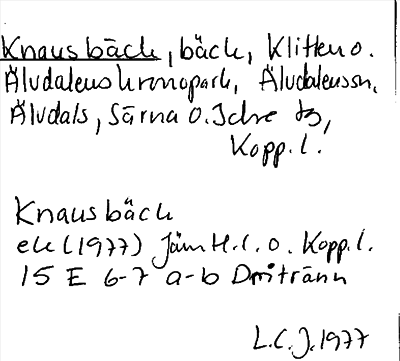 Knausbäck, bäck, Klitten o.
Älvdalens kronopark, Älvdalens sn,
Älvdals, Särna o. Idre tg,
Kopp. l.
Knausbäck
ek (1977) Jämt.l. o. Kopp. l.
15 E 6-7 a-b Dritränn
L.C.J. 1977